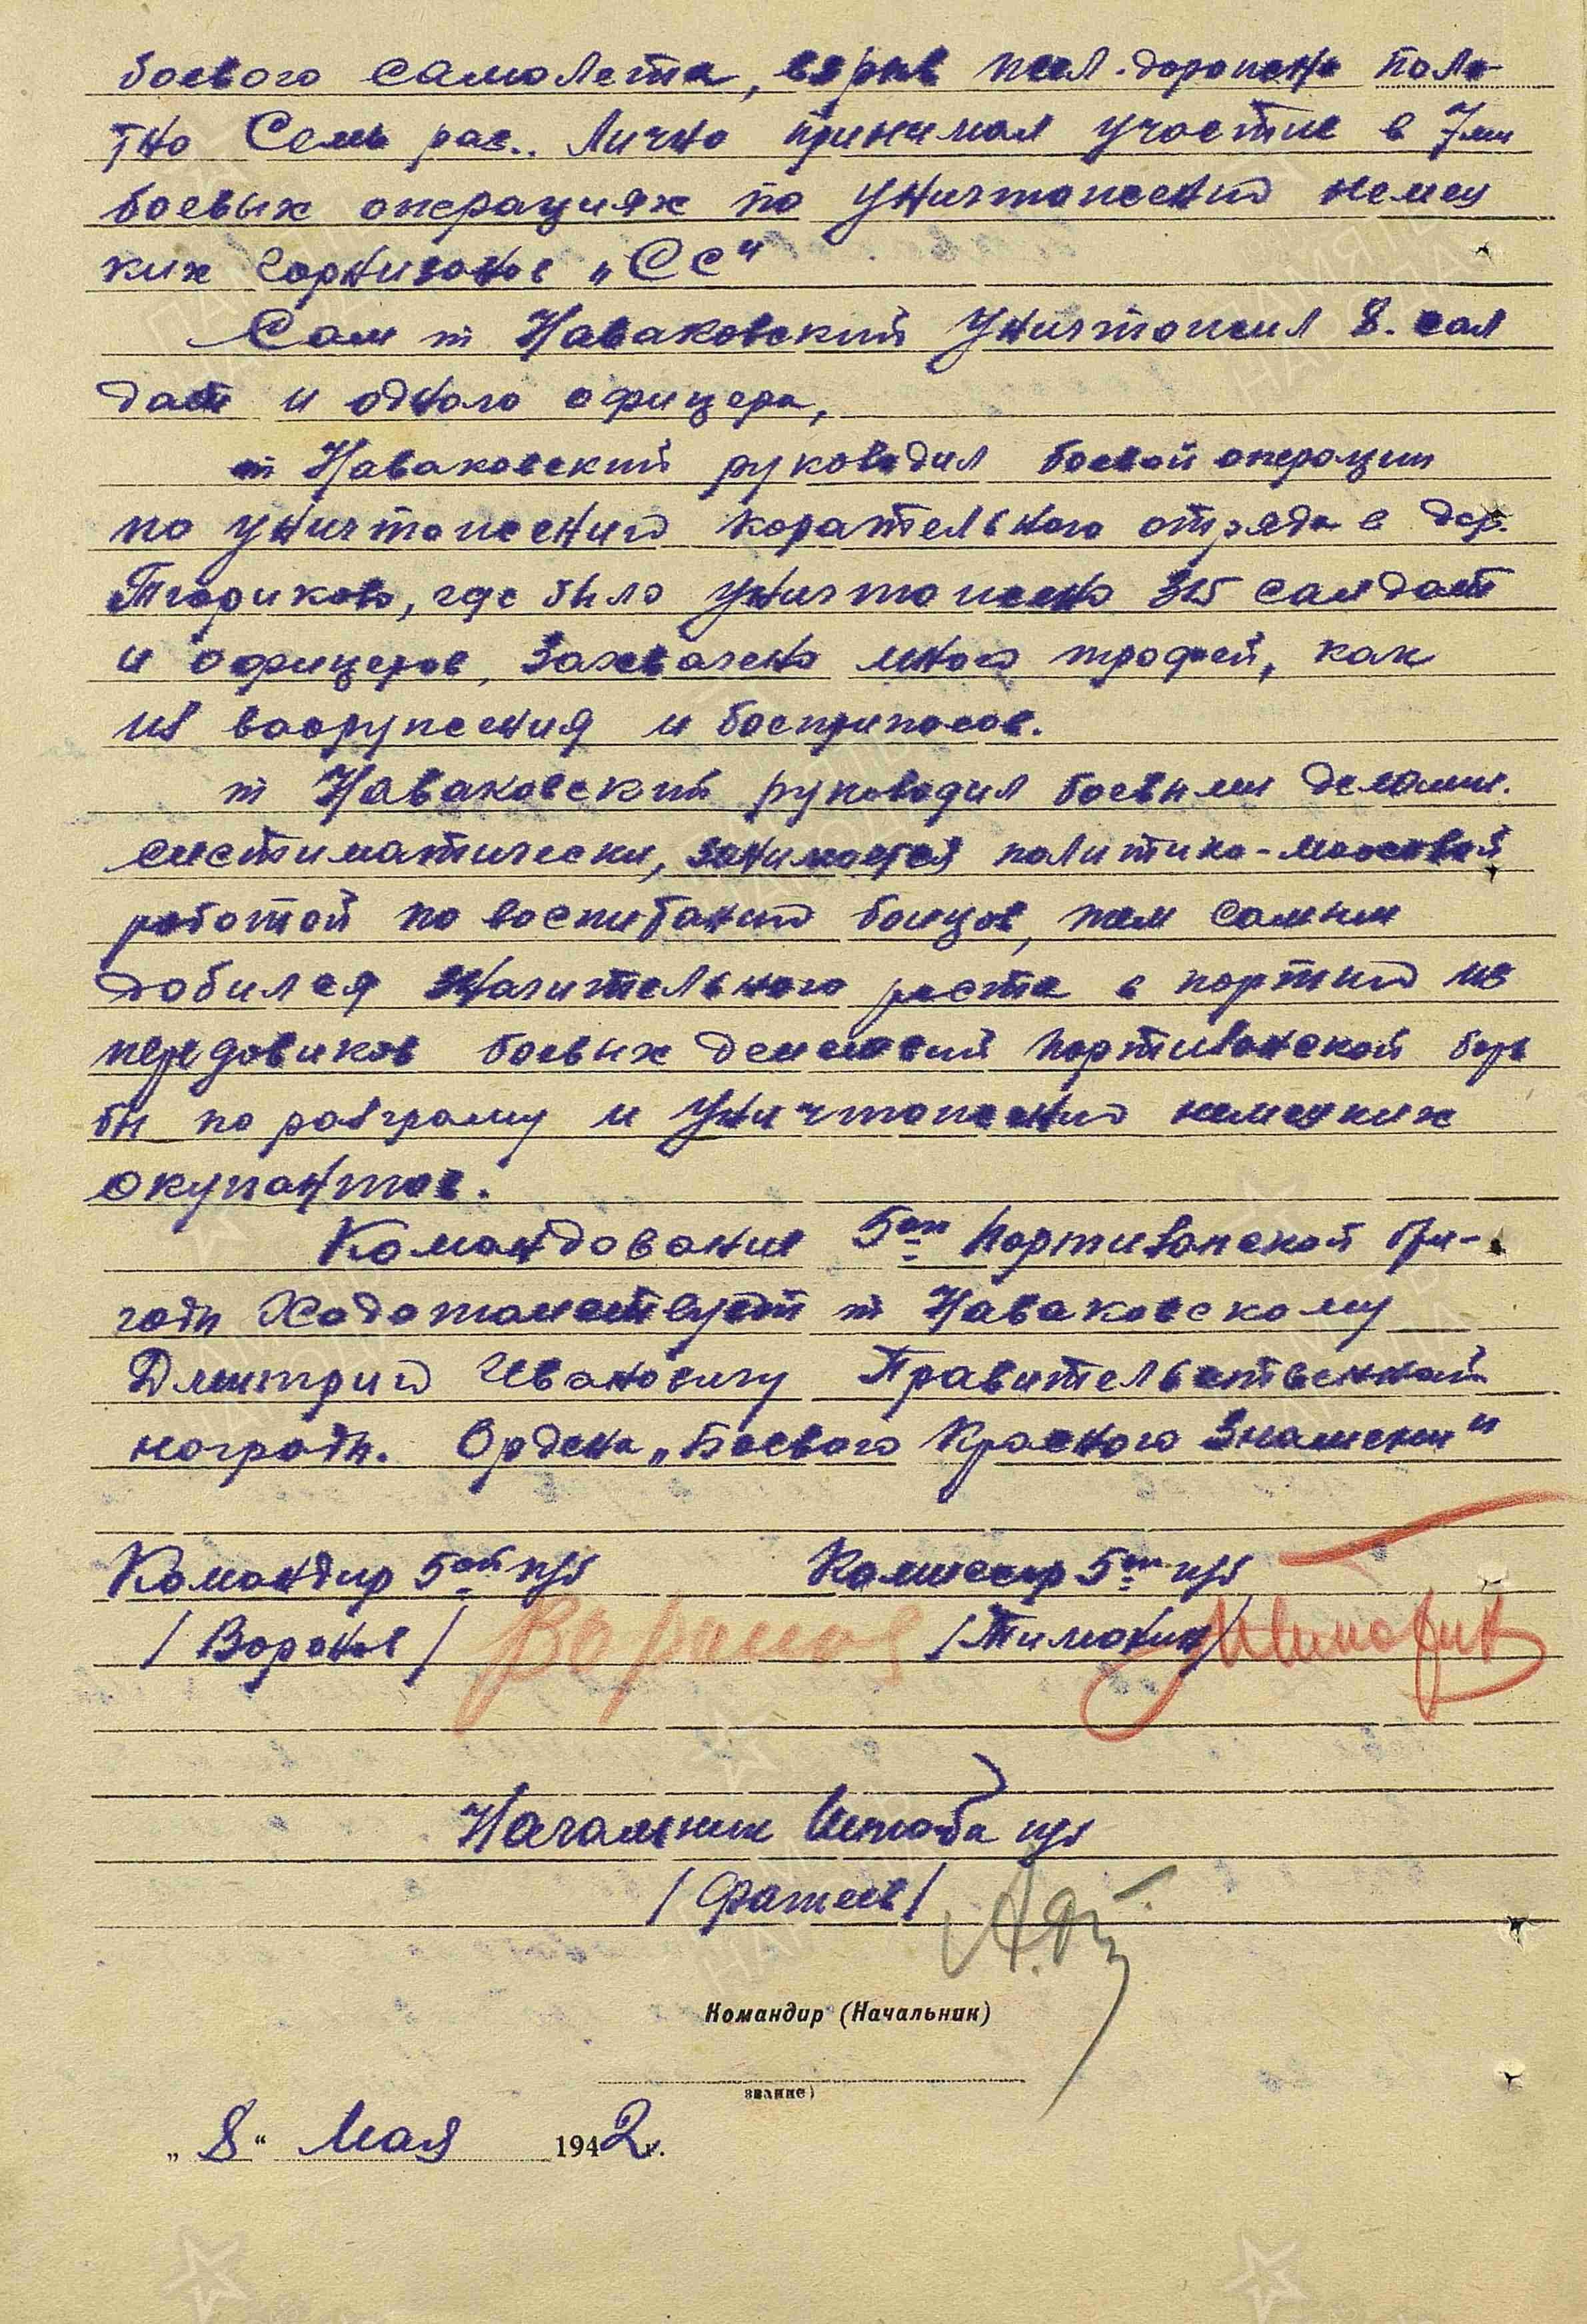 боевого самолета, взрыв жел.дорожно поло-
тно Семь раз.. Лично принимал участие в 7ми
боевых операциях по уничтожению немец
ких гарнизонов „СС"
Сам т Наваковский Уничтожил 8. сал
дат и одного офицера,
т Наваковский руководил боевой операции
по уничтожению карательного отряда в дер.
где было уничтожено 315 салдат
и офицеров, Захвачено много трофей, как
из вооружения и боеприпасов.
т Наваковский руководил боевыми делами.
систиматически, занимается политико-массовой
работой по воспитанию бойцов, тем самым
добился значительного роста в партию из
передовиков боевых действий партизанской борь
бы по разгрому и Уничтожению немецких
окупантов.
Командование 5ой партизанской бри-
гады Ходатайствует т Наваковскому
Дмитрию Ивановичу Правительственной
награды. Ордена „Боевого Красного Знамени"
Командир 5ой п/б
Комиссар 5ой п/б
/Воронов/ Воронов
/Тимохин/ Тимохин
Начальник Штаба п/б
/Фатеев/
Командир (Начальник)
звание)
„8" Мая 1942г.
ПАМЯТЬ
НАРОДА